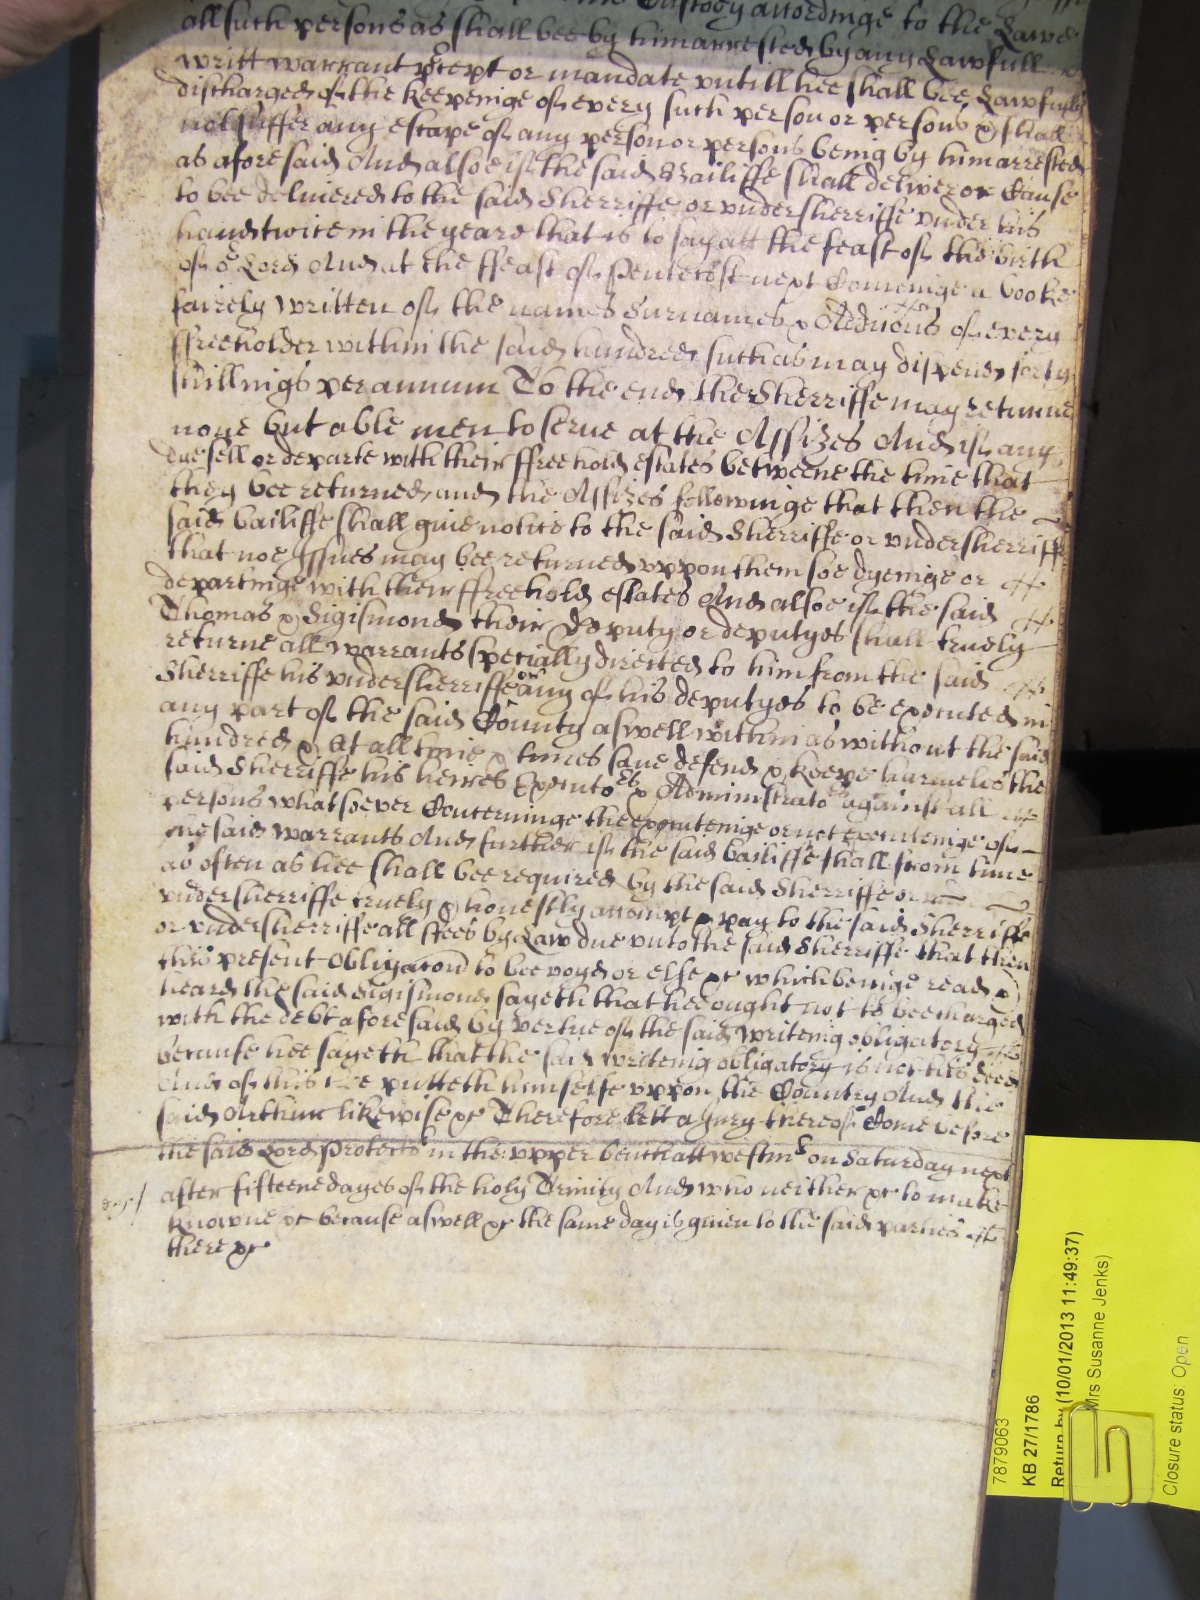 Custody accordinge to the Lawe
all such persons as shall bee by him arrested by any Lawfull
writt warrant precept or mandate untill hee shall bee Lawfully
discharged of the keepeinge of every such person or persons & shall
not suffer any escape of any person or persons being by him arrested
as aforesaid And alsoe if the said Bailiffe shall deliver or Cause
to bee delivered to the said Sherriffe or undersherriffe under his
hand twice in the yeare that is to say att the feast of the birth
of or Lord And at the ffeast of Pentecost next Comeinge a booke
fairely written of the names Surnames & Addicons of every
ffreeholder within the said hundred such as may dispend forty
shillings per annum To the end the Sherriffe may returne
none but able men to serve at the Assizes And if any
dye sell or departe with their ffreehold estates betweene the time that
they bee returned and the Assizes followinge that then the
said bailiffe shall give notice to the said Sherriffe or undersherriffe
that noe Issues may bee returned uppon them soe dyeinge or
departinge with their ffreehold estates And alsoe if the said
Thomas & Sigismond their Deputy or deputyes shall truely
returne all warrants specially directed to him from the said
Sherriffe his undersherriffe or any of his deputyes to be executed in
any part of the said County aswell within as without the said
hundred & At all time & times save defend & keepe harmeles the
said Sherriffe his heires Executors & Administrators against all
persons whatsoever Concerninge the executeinge or not executeinge of
the said warrants And further if the said bailiffe shall from time
as often as hee shall bee required by the said Sherriffe or
undersherriffe truely & honestly attempt & pay to the said Sherriffe
or undersherriffe all ffees by Law due unto the said Sherriffe that then
this present obligacon to bee voyd or else &c which beinge read &
heard the said Sigismond sayeth that hee ought not to bee charged
with the debt aforesaid by vertue of the said writeing obligatory
because hee sayeth that the said writeing obligatory is not his deed
And of this hee putteth himselfe uppon the Country And the
said Arthur likewise &c Therefore lett a Jury thereof Come before
the said Lord Protector in the upper bench att Westmr on Saturday next
after fifteene dayes of the holy Trinity And who neither &c to make
knowne &c because aswell &c the same day is given to the said parties
there &c
7879063
KB 27/1786
Return by (10/01/2013 11:49:37)
Mrs Susanne Jenks)
Closure status: Open